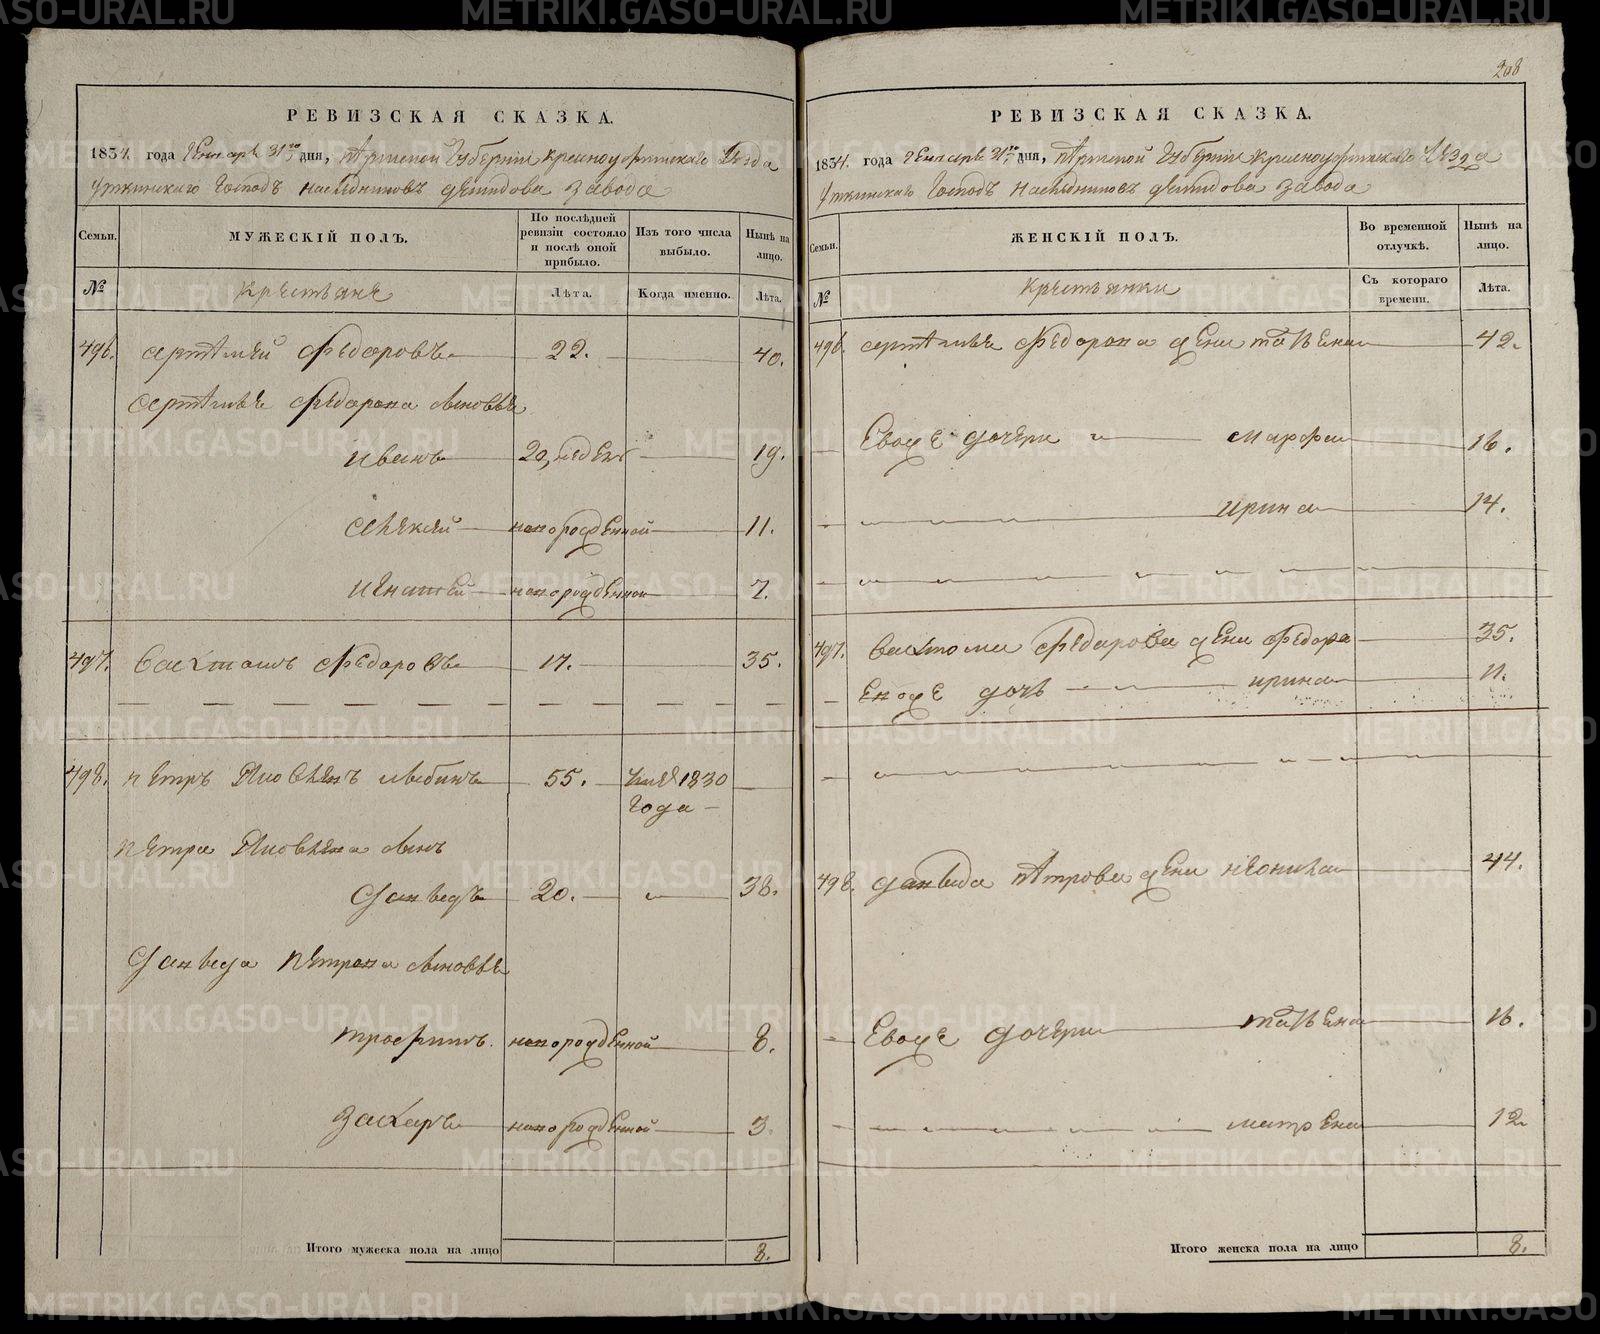 208
РЕВИЗСКАЯ СКАЗКА.
1834. года Генваря 31го дня, Пермской Губернии Красноуфимского Уезда
Уткинского Господъ наследниковъ Демидова завода
Семьи.
МУЖЕСКІЙ ПОЛЪ.
По послѣдней ревизіи состояло и послѣ оной прибыло.
Изъ того числа выбыло.
Нынѣ на лицо.
№
Крестьяне
Лѣта.
Когда именно.
Лѣта.
496. Федоровъ 22. 40.
Федорова сыновья
Иванъ 20, недель 19.
Алексей новорожденной 11.
Игнатей новорожденной 7.
497. Федоровъ 17. 35.
498. Петръ Яковлевъ 55. 1830
года
Петра Яковлева сынъ
Давыдъ 20. 38.
Давыда Петрова сыновья
Трофимъ. новорожденной 8.
Захаръ новорожденной 3.
Итого мужеска пола на лицо 8.
РЕВИЗСКАЯ СКАЗКА.
1834. года Генваря 31го дня, Пермской Губернии Красноуфимского Уезда
Уткинского Господъ наследниковъ Демидова завода
Семьи.
ЖЕНСКІЙ ПОЛЪ.
Во временной отлучкѣ.
Нынѣ на лицо.
№
Крестьянки
Съ котораго времени.
Лѣта.
496. Федорова жена Татьяна 42.
Евоже дочери Марфа 16.
Ирина 14.
497. Федорова жена Федора 35.
Евоже дочь Ирина 11.
498. Давыда Петрова жена 44.
Евоже дочери Татьяна 16.
Матрена 12.
Итого женска пола на лицо 8.
METRIKI.GASO-URAL.RU